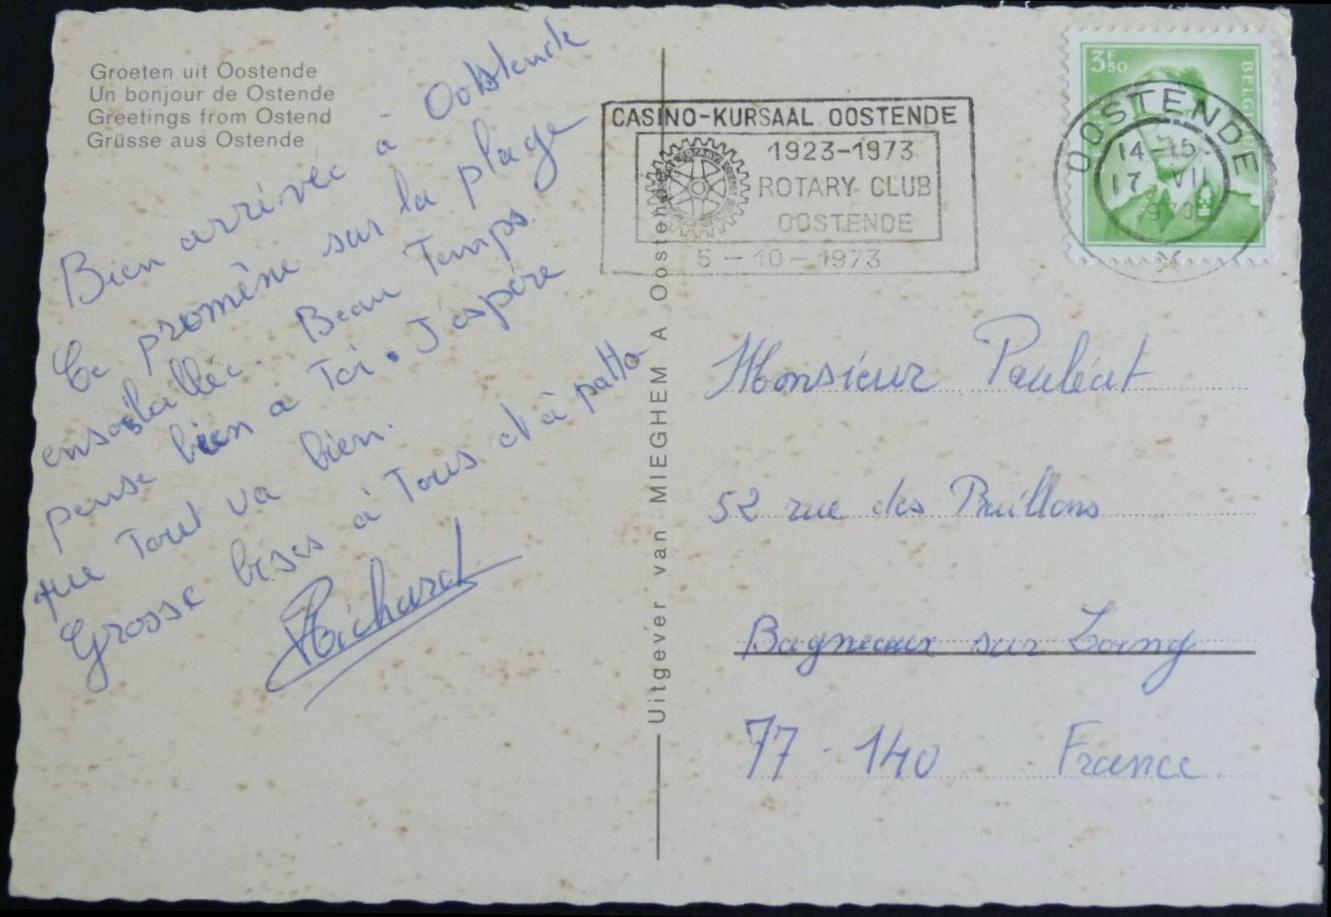 Groeten uit Oostende
Un bonjour de Ostende
Greetings from Ostend
Grüsse aus Ostende
Bien arrivée à Oostende
Ce promène sur la plage
ensolaillée. Beau Temps.
pense bien a Toi. J'espère
que Tout va bien.
Grosse bises à Tous et à patto
Richard
Uitgever van MIEGHEM A Oostende
CASINO-KURSAAL OOSTENDE
1923-1973
ROTARY CLUB
OOSTENDE
5-10-1973
3F50
OOSTENDE
14-15
17 VII
1973
Monsieur Pauléat
52 rue des
Bagneaux sur Loing
77-140 France